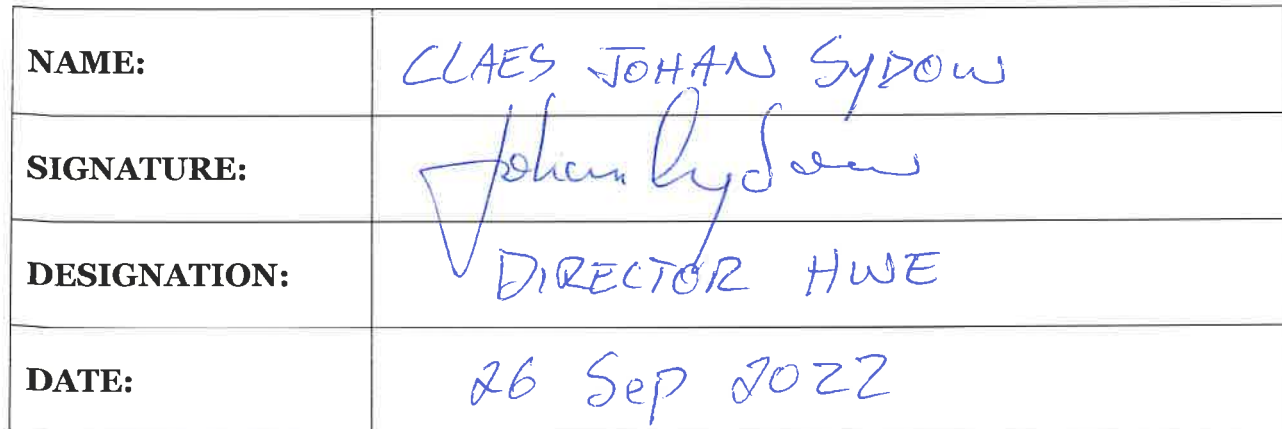 NAME: CLAES JOHAN SYDOW
SIGNATURE: Johan Sydow
DESIGNATION: DIRECTOR HWE
DATE: 26 Sep 2022